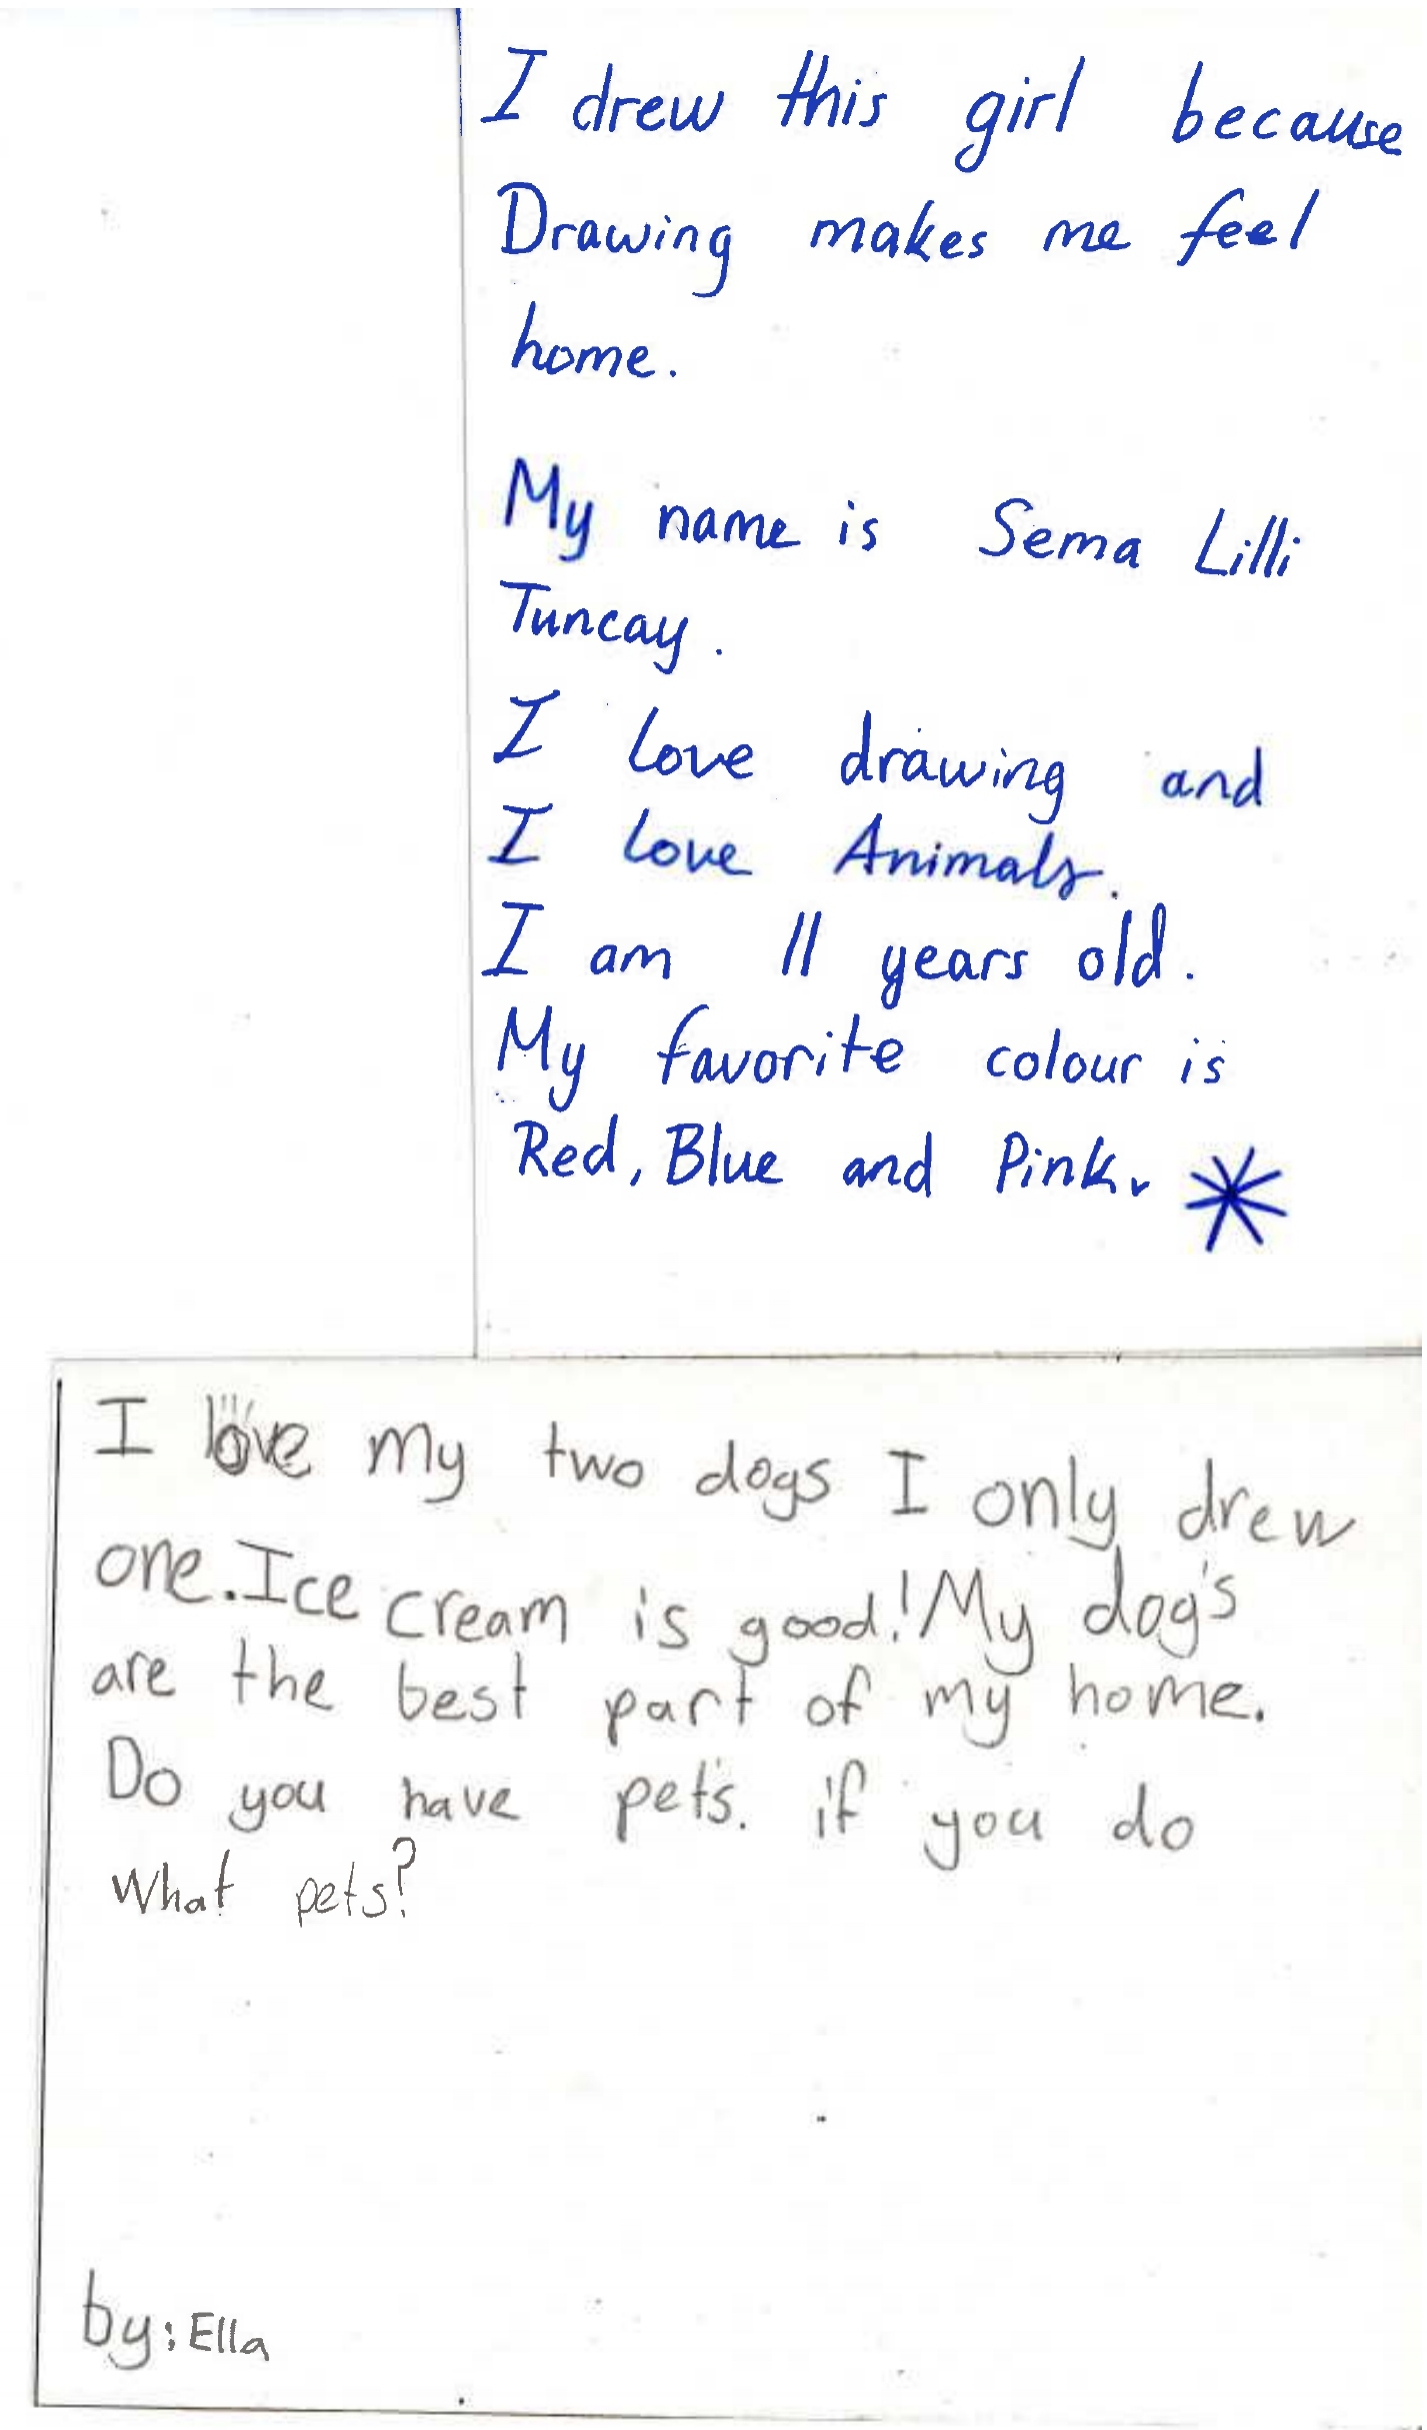 I drew this girl because
Drawing makes me feel
home.
My name is Sema Lilli
Tuncay.
I love drawing and
I love Animals.
I am 11 years old.
My favorite colour is
Red, Blue and Pink.
I love my two dogs I only drew
one. Ice cream is good! My dog's
are the best part of my home.
Do you have pet's. if you do
What pets?
by: Ella